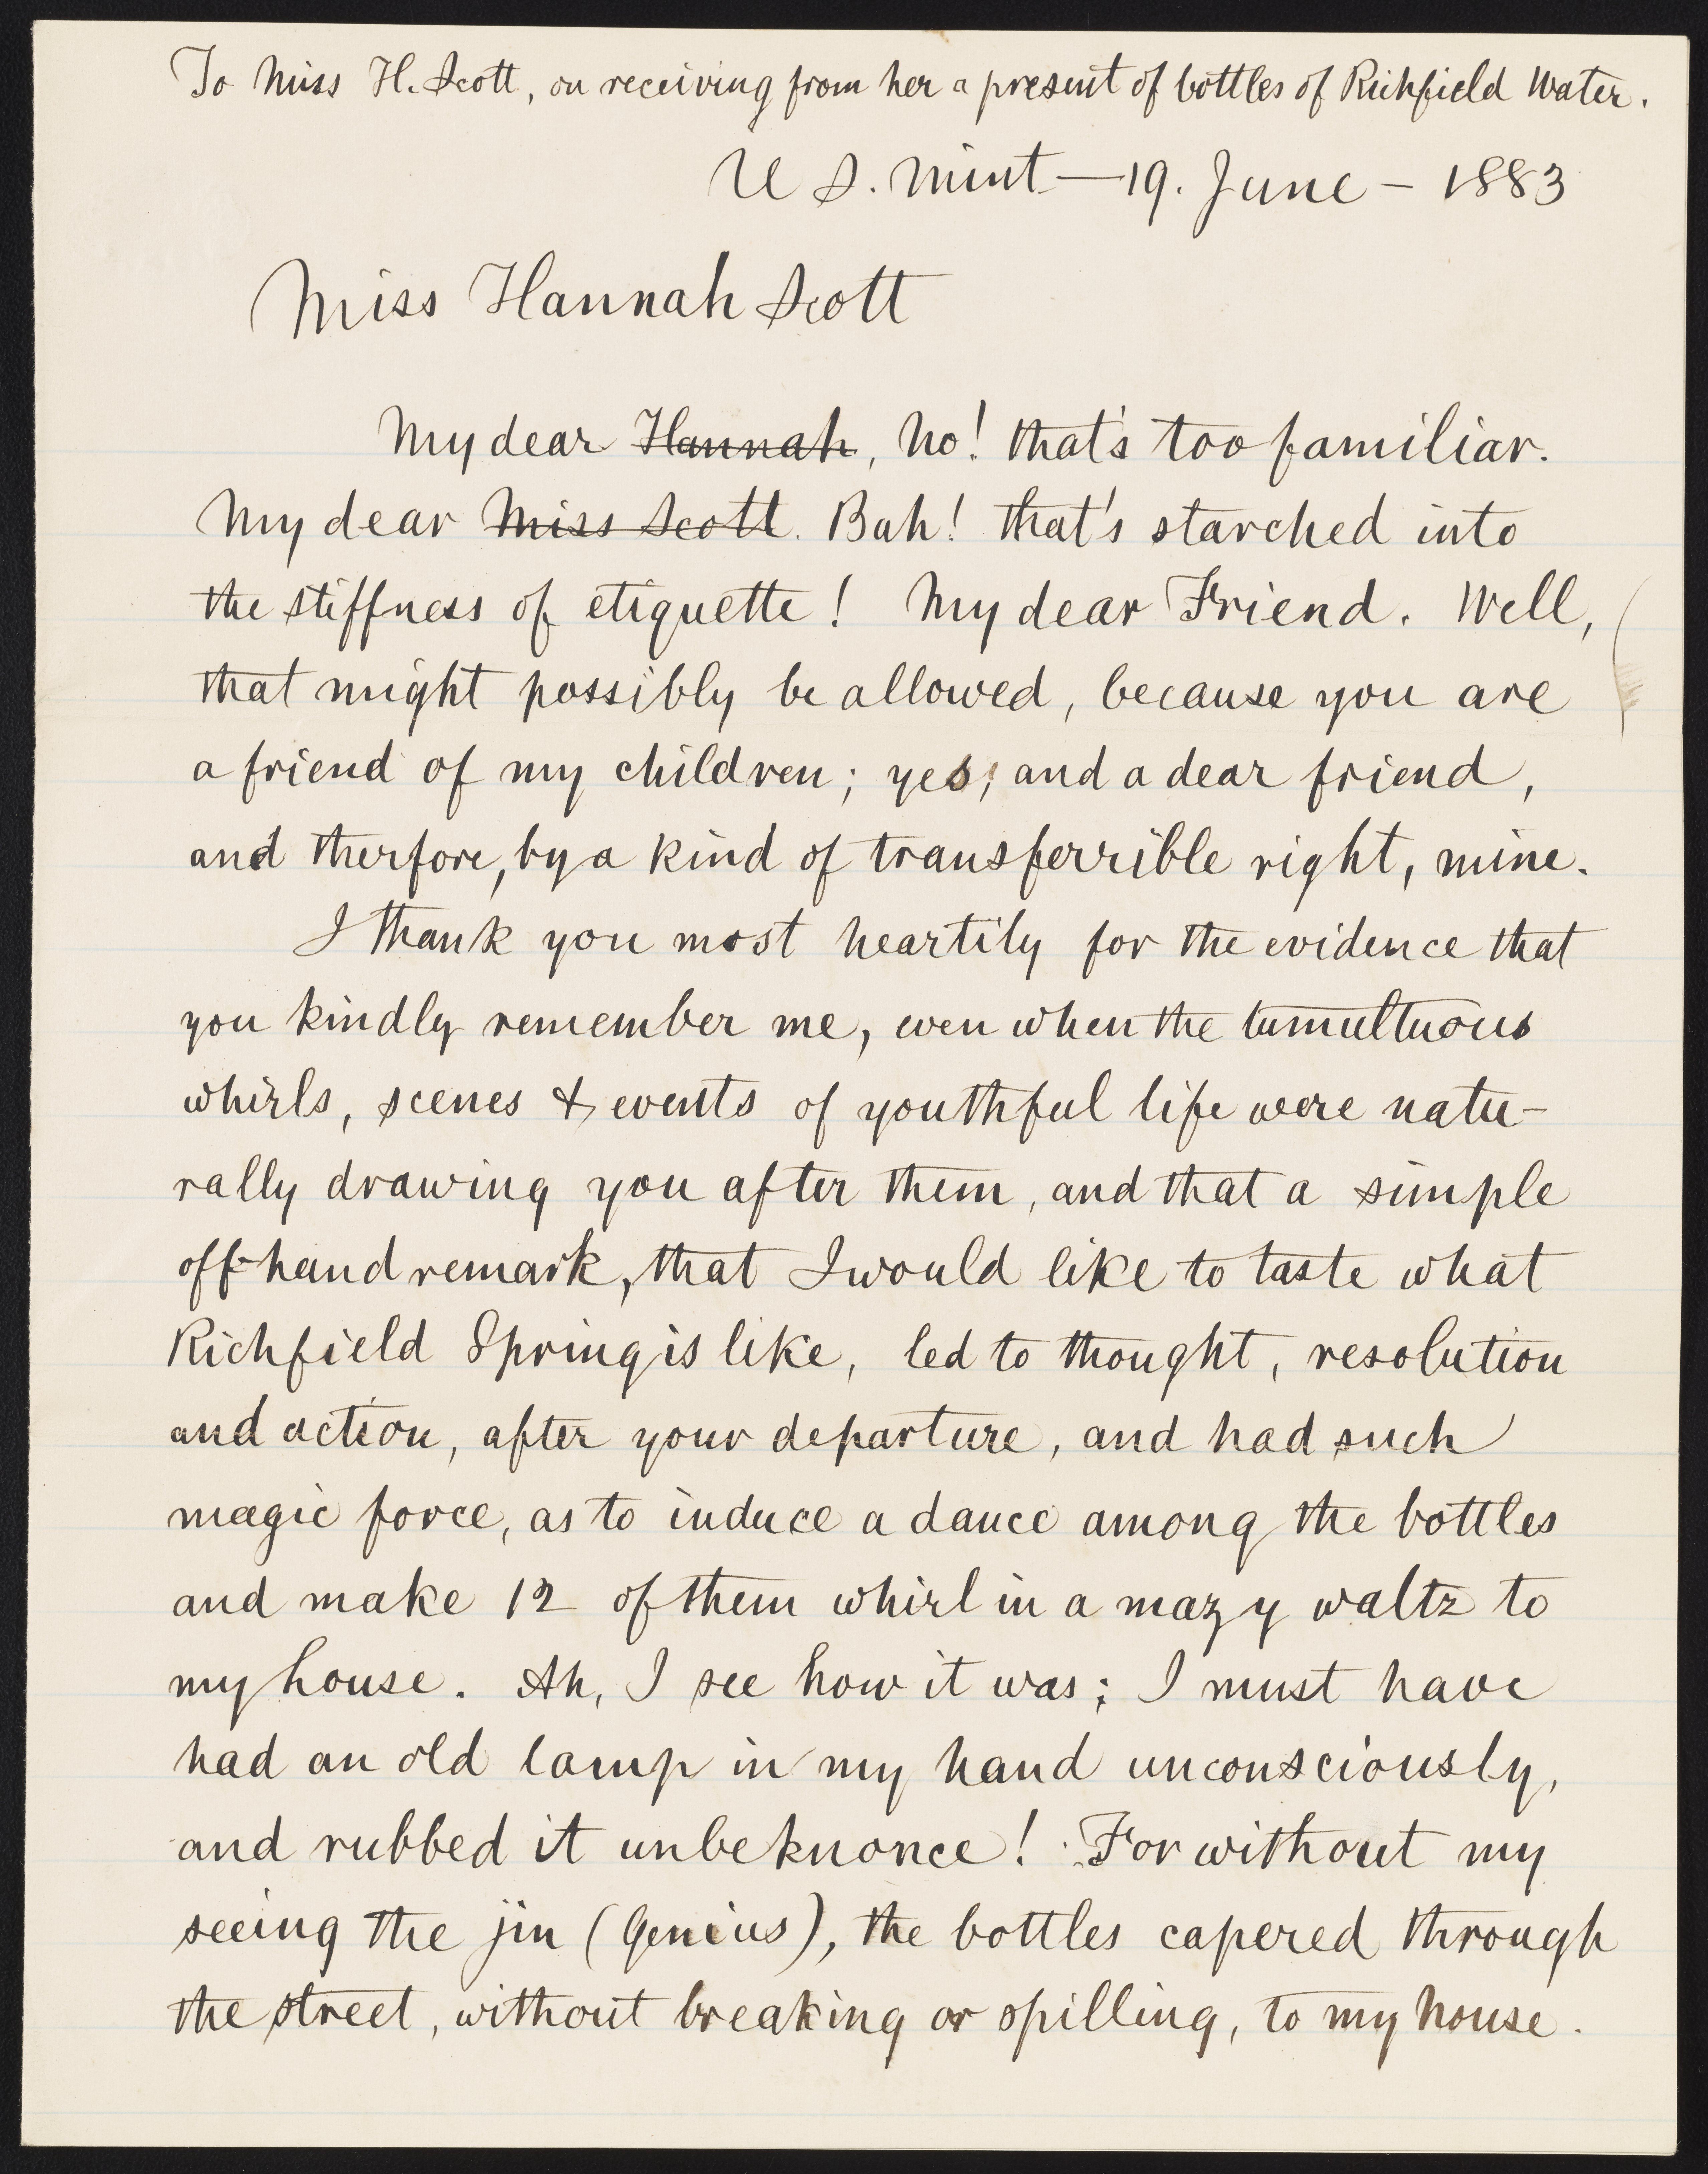 To Miss H. Scott, on receiving from her a present of bottles of Richfield Water.
U S. Mint — 19. June – 1883
Miss Hannah Scott
My dear Hannah, No! that's too familiar.
My dear Miss Scott. Bah! that's starched into
the stiffness of etiquette! My dear Friend. Well,
that might possibly be allowed, because you are
a friend of my children; yes, and a dear friend,
and therfore, by a kind of transferrible right, mine.
I thank you most heartily for the evidence that
you kindly remember me, even when the tumultuous
whirls, scenes & events of youthful life were natu-
rally drawing you after them, and that a simple
off-hand remark, that I would like to taste what
Richfield Spring is like, led to thought, resolution
and action, after your departure, and had such
magic force, as to induce a dance among the bottles
and make 12 of them whirl in a mazy waltz to
my house. Ah, I see how it was; I must have
had an old lamp in my hand unconsciously,
and rubbed it unbeknonce! For without my
seeing the jin (Genius), the bottles capered through
the street, without breaking or spilling, to my house.